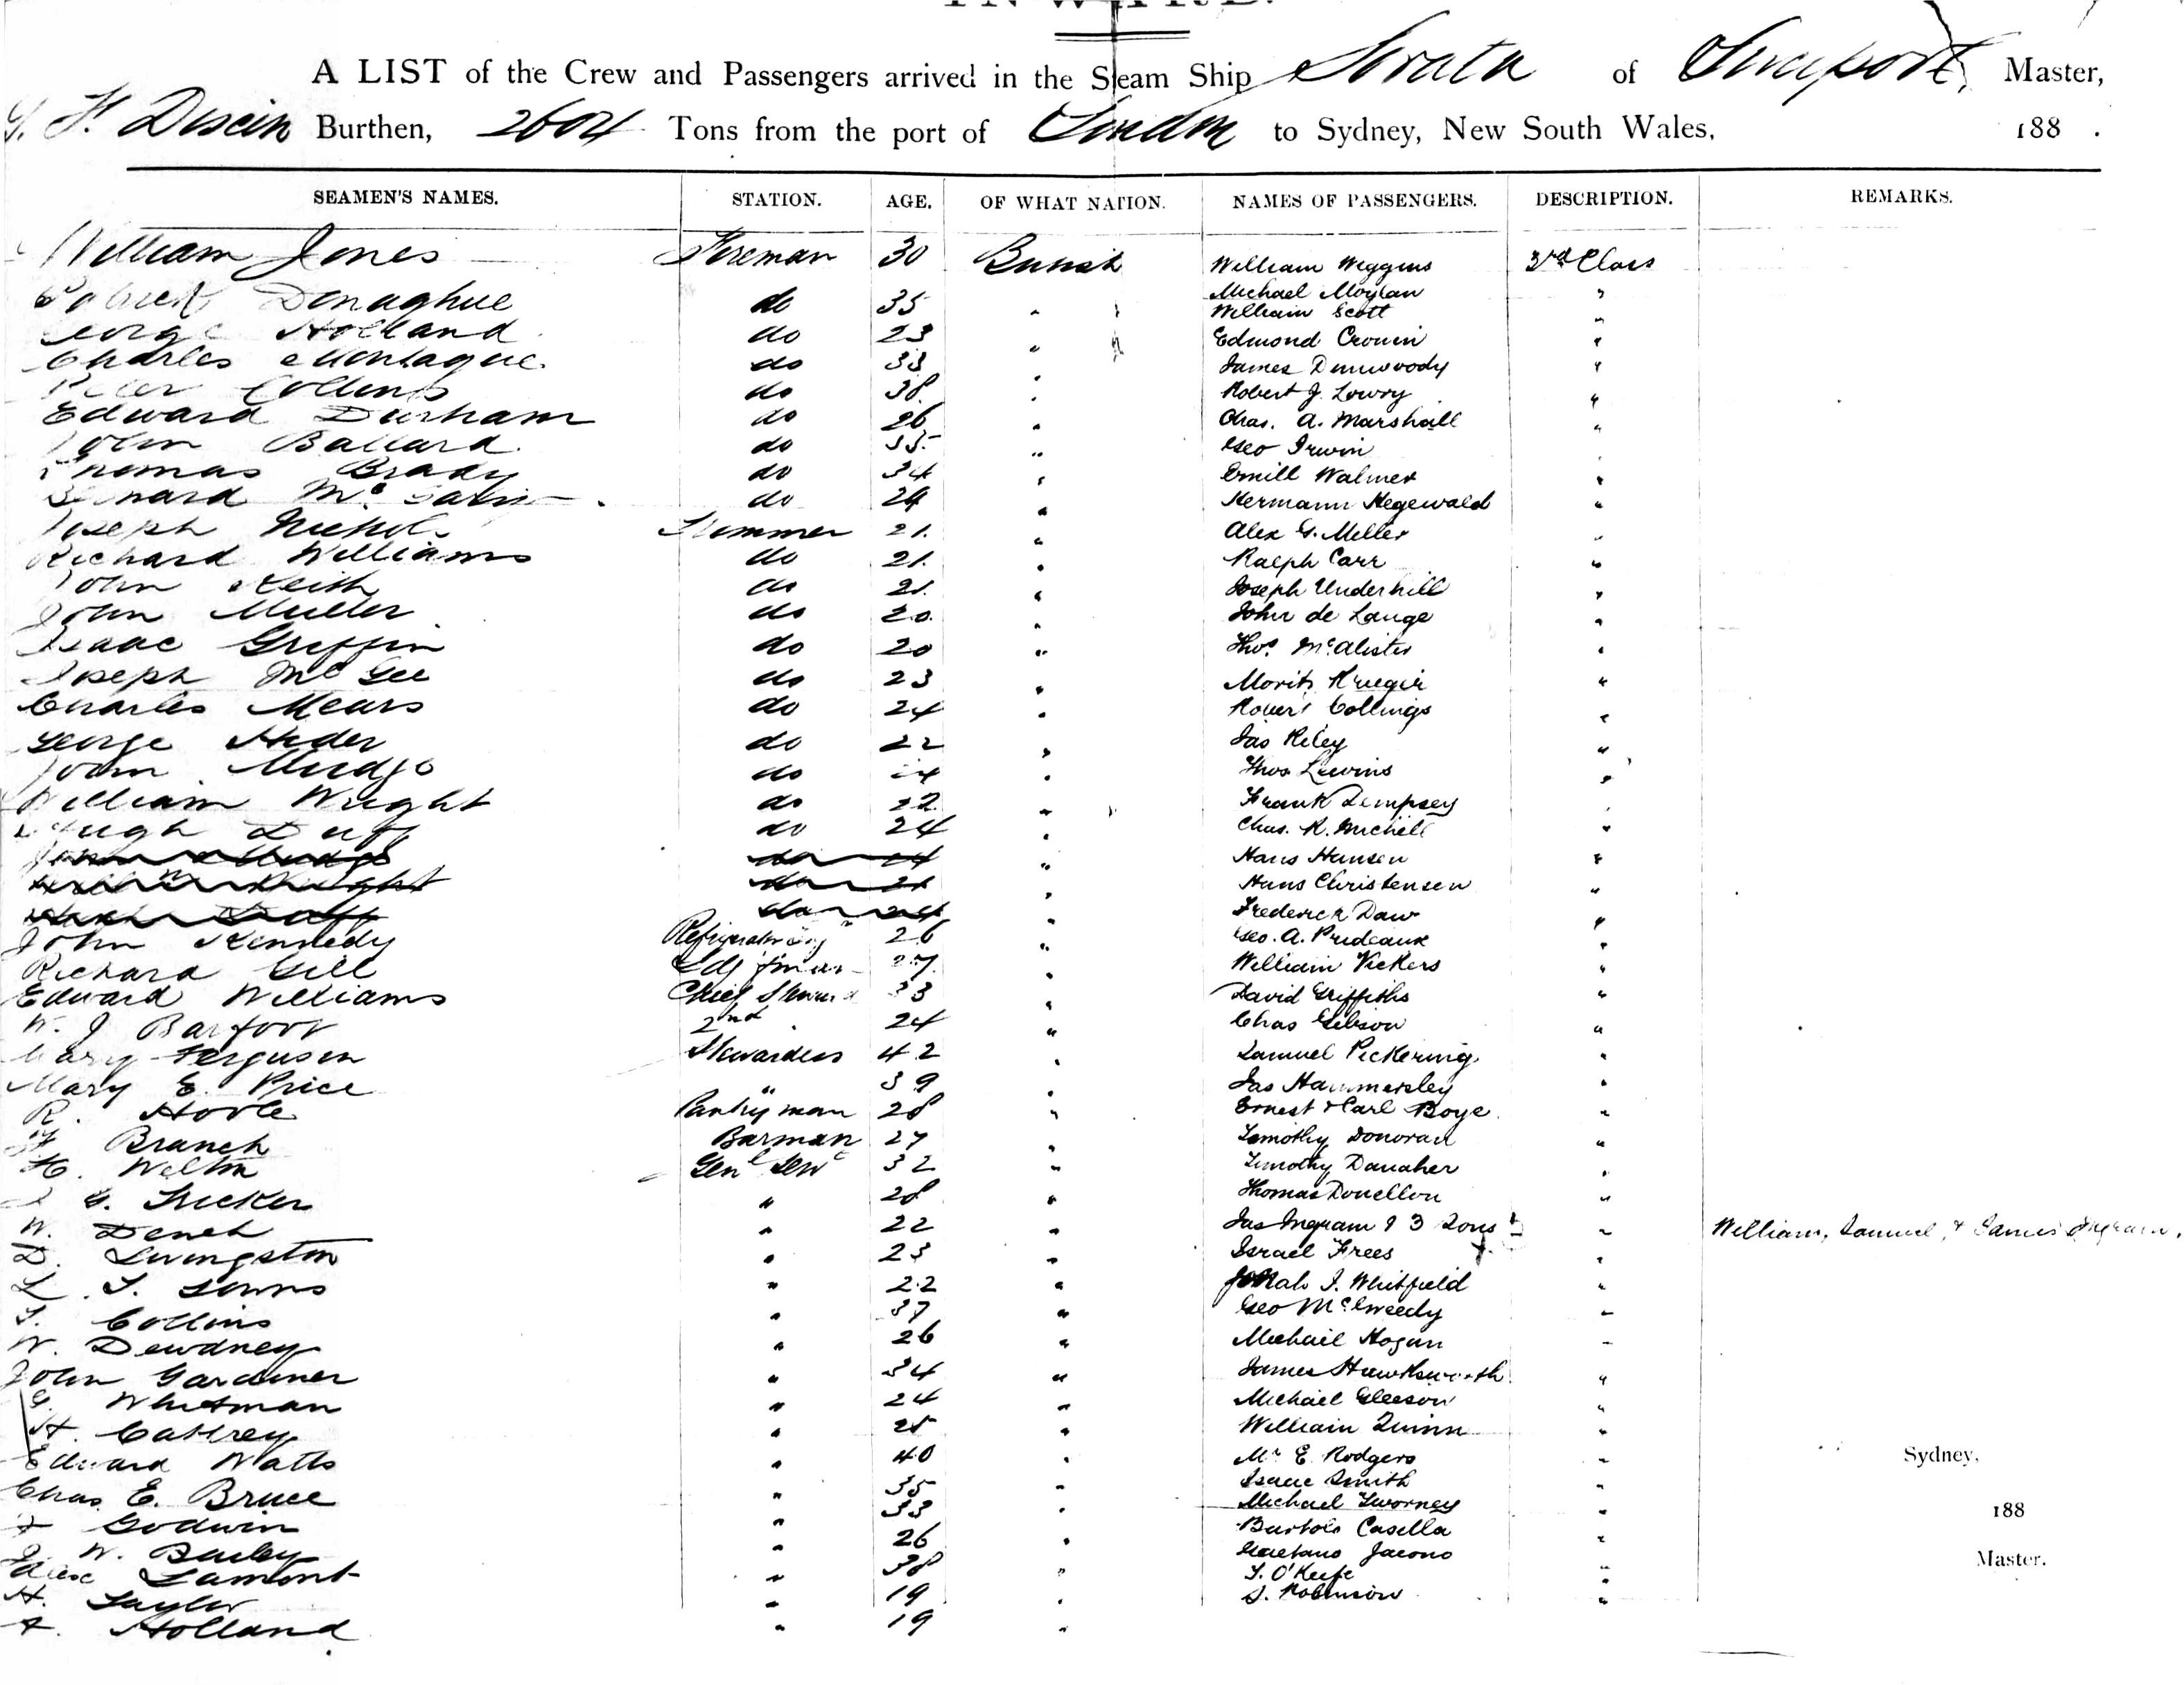 A LIST of the Crew and Passengers arrived in the Steam Ship Sorata of Liverpool, Master,
Burthen, 2602 Tons from the port of London to Sydney, New South Wales, 188 .
SEAMEN'S NAMES. STATION. AGE. OF WHAT NATION. NAMES OF PASSENGERS. DESCRIPTION. REMARKS.
William Jones Fireman 30 British William Wiggins 3rd Class
Patrick Donaghue do 35 " Michael Moylan "
William Scott "
George Holland do 23 " Edmond Cronin "
Charles Montague do 33 " James Dunwoody "
Peter Collins do 38 " Robert J. Lowry "
Edward Durham do 26 " Chas. A. Marshall "
John Ballard do 35 " Geo Irwin "
Thomas Brady do 34 " Emill Walmer "
Bernard Mc do 24 " Hermann Hegewald "
Joseph Nichol Trimmer 21 " Alex G. Miller "
Richard Williams do 21 " Ralph Carr "
John Keith do 21 " Joseph Underhill "
John Muller do 20 " John de Lange "
Isaac Griffin do 20 " Thos. McAlister "
Joseph McGee do 23 " Moritz Krueger "
Charles Mears do 24 " Robert Collings "
George do 22 " Jas Riley "
John Mudge do " Thos Lewins "
William Wright do 22 " Frank Dempsey "
Hugh Duff do 24 " Chas. K. Michell "
John Mudge do 24 " Hans Hansen "
William Wright do " Hans Christensen "
Hugh Duff do 24 " Frederick Daw "
John Kennedy Refrigerator Eng 26 " Geo. A. Prideaux "
Richard Gill Ldg fman 27 " William Vickers "
Edward Williams Chief Steward 33 " David Griffiths "
W. J. Barfoot 2nd " 24 " Chas Gibson "
Mary Ferguson Stewardess 42 " Samuel Pickering "
Mary E. Price " 39 " Jas Hammersley "
R. Hoole Pantryman 28 " Ernest & Carl Boye "
Branch Barman 27 " Timothy Donovan "
H. Welton Genl Serv 32 " Timothy Danaher "
G. Tricker " 28 " Thomas Donellon "
W. Dench " 22 " Jas Ingram & 3 Sons " William, Samuel, & James Ingram.
D. Livingston " 23 " Israel Frees "
L. T. " 22 " J. Whitfield "
T. Collins " 37 " Geo "
W. Dewdney " 26 " Michael Hogan "
John Gardiner " 34 " James Hawksworth "
G. Whitman " 24 " Michael Gleeson "
H. Cattrey " 25 " William Quinn "
Edward Watts " 40 " Mr E. Rodgers "
Sydney,
Chas. E. Bruce " 35 " Isaac Smith "
Godwin " 33 " Michael Twomey "
188
J. W. Bailey " 26 " Bartolo Casella "
Alex Lamont " 38 " Gaetano Jacono "
Master.
H. Taylor " 19 " T. O'Keefe "
A. Holland " 19 " S. Robinson "